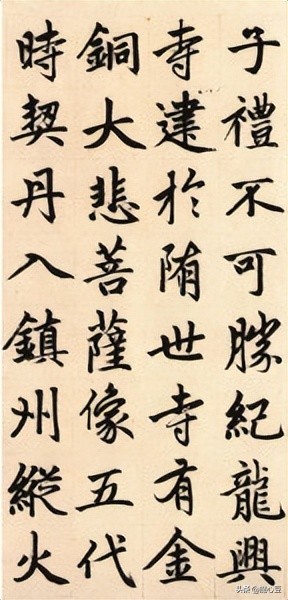 子禮不可勝紀龍興
寺建於隋世寺有金
銅大悲菩薩像五代
時契丹入鎮州縱火
头条@圈心豆